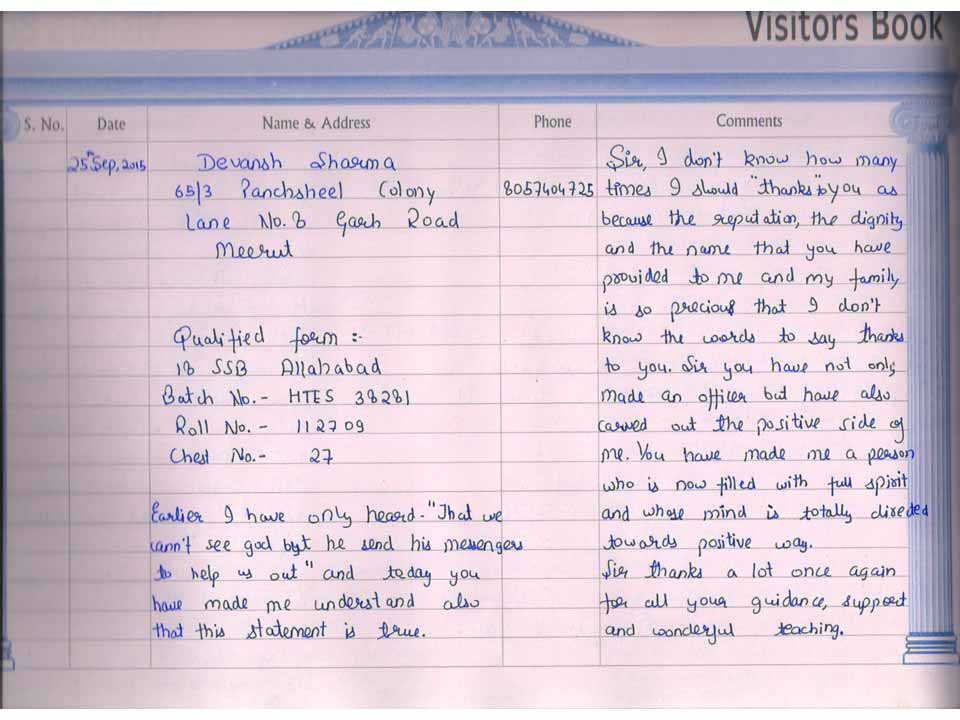 Visitors Book
S. No.
Date
Name & Address
Phone
Comments
25th Sep, 2015
Devansh Sharma
65/3 Panchsheel Colony
Lane No. 8 Garh Road
Meerut
Qualified form :-
18 SSB Allahabad
Batch No. - HTES 38281
Roll No. - 112709
Chest No. - 27
Earlier I have only heard - "That we
cann't see god byt he send his messengers
to help us out" and today you
have made me understand also
that this statement is true.
8057404725
Sir, I don't know how many
times I should "thanks" to you as
because the reputation, the dignity
and the name that you have
provided to me and my family
is so precious that I don't
know the words to say thanks
to you. Sir you have not only
made an officer but have also
carved out the positive side of
me. You have made me a person
who is now filled with full spirit
and whose mind is totally directed
towards positive way.
Sir thanks a lot once again
for all your guidance, support
and wonderful teaching.